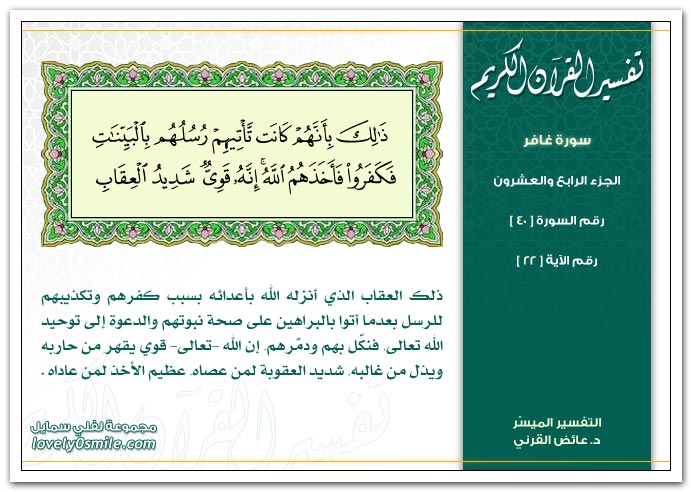 تفسير القرآن الكريم
سورة غافر
الجزء الرابع والعشرون
رقم السورة [ ٤٠ ]
رقم الآية [ ٢٢ ]
ذَٰلِكَ بِأَنَّهُمْ كَانَت تَّأْتِيهِمْ رُسُلُهُم بِالْبَيِّنَاتِ
فَكَفَرُوا۟ فَأَخَذَهُمُ ٱللَّهُ ۚ إِنَّهُۥ قَوِىٌّ شَدِيدُ ٱلْعِقَابِ
ذلك العقاب الذي أنزله الله بأعدائه بسبب كفرهم وتكذيبهم
للرسل بعدما أتوا بالبراهين على صحة نبوتهم والدعوة إلى توحيد
الله تعالى، فنكّل بهم ودمّرهم، إن الله -تعالى- قوي يقهر من حاربه
ويذل من غالبه، شديد العقوبة لمن عصاه، عظيم الأخذ لمن عاداه .
التفسير الميسّر
د. عائض القرني
مجموعة لفلي سمايل
lovely0smile.com
تفسير القرآن الكريم